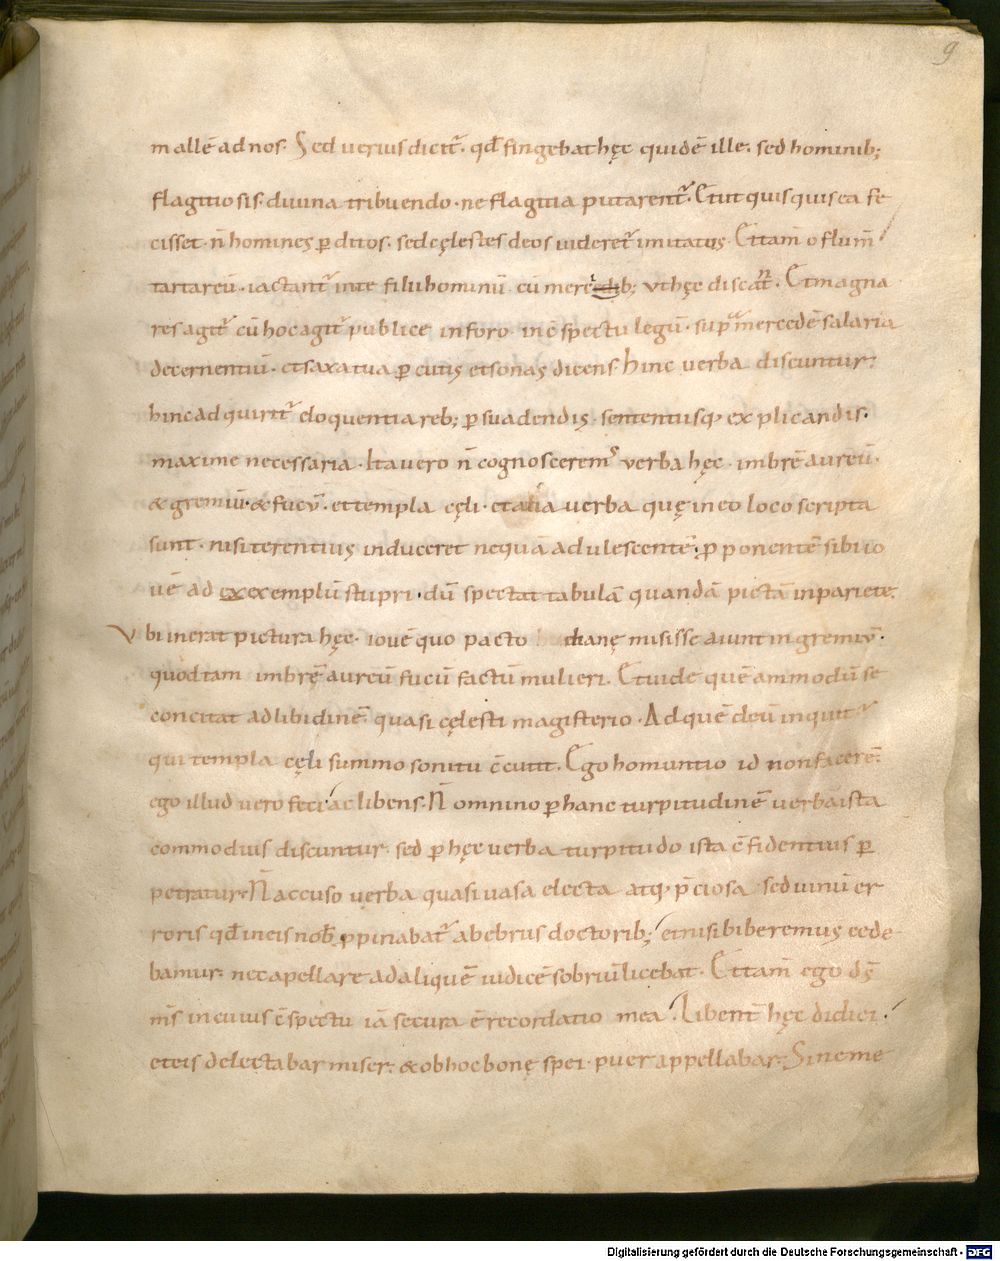 9
mallē ad nos. Sed verius dicit᷒. qđ fingebat hęc quidē ille. sed hominib;
flagitiosis. divina tribuendo. ne flagitia putarent᷒. Et ut quisquis ea fe
cisset. n̄ homines ꝑditos. sed cęlestes deos videret᷒ imitatus. Et tam̄ o flum̄
tartareū. iactant᷒ in te filii hominū cū mercedib; ut hęc discant. Et magna
res agit᷒ cū hoc agit᷒ publice in foro. in c̄spectu legū. supra mercedē salaria
decernentiū. et saxa tua ꝑcutis et sonas dicens. hinc verba discuntur.
hinc adquirit᷒ eloquentia reb; ꝑsuadendis. sententiisq; explicandis.
maxime necessaria. Ita vero n̄ cognosceremꝰ verba hęc. imbrē aureū.
& gremiū. & fucū. et templa cęli. et alia verba quę in eo loco scripta
sunt. nisi terentius induceret nequā adulescentē. ꝓponentē sibi io
vē ad exexemplū stupri. dū spectat tabulā quandā pictā in pariete.
Vbi inerat pictura hęc. iovē quo pacto danę misisse aiunt in gremiū.
quodtam imbrē aureū fucū factū mulieri. Et vide quē ammodū se
concitat ad libidinē quasi cęlesti magisterio. Ad quē deū inquit᷒
qui templa cęli summo sonitu c̄cutit. Ego homuntio id non facerē.
ego illud vero feci ac libens. N̄ omnino ꝑ hanc turpitudinē verba ista
commodius discuntur. sed ꝑ hęc verba turpitudo ista c̄fidentius ꝑ
petratur. N̄ accuso verba quasi vasa electa atq; p̄ciosa. sed vinū er
roris qđ in eis nob̄ ꝓpinabat᷒ ab ebriis doctorib; et nisi biberemus cede
bamur. nec apellare ad aliquē iudicē sobriū licebat. Et tam̄ ego ds̄
ms̄ in cuius c̄spectu iā secura ē recordatio mea. Libent̄ hęc didici.
et eis delectabar miser. & ob hoc bonę spei. puer appellabar. Sine me
Digitalisierung gefördert durch die Deutsche Forschungsgemeinschaft - DFG